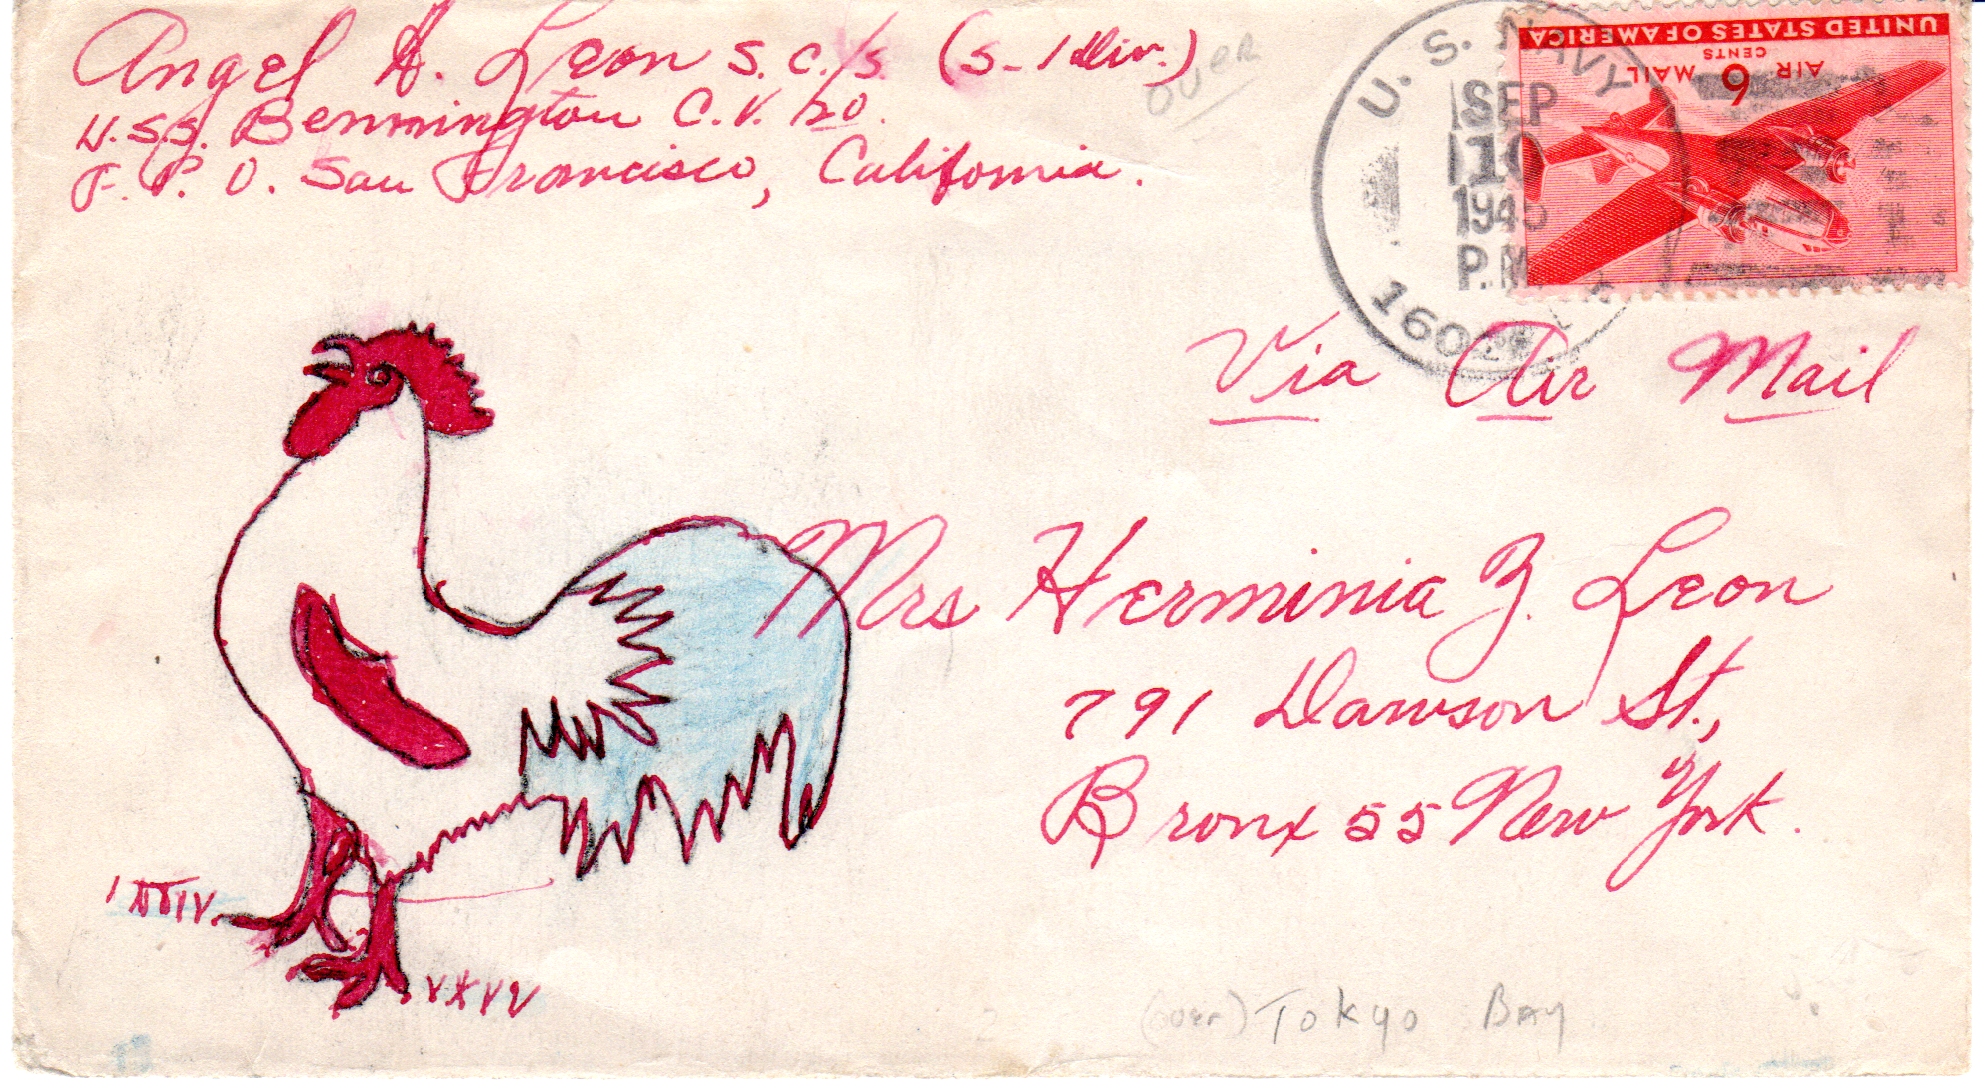 Angel A. Leon S. C./S. (S-1 Div.)
U.S.S. Bennington C.V. 20.
F. P. O. San Francisco, California.
OVER
U. S. NAVY
SEP
10
1945
P.M.
UNITED STATES OF AMERICA
AIR 6 MAIL
CENTS
Via Air Mail
Mrs Herminia Z. Leon
791 Dawson St.,
Bronx 55 New York.
(over) Tokyo Bay